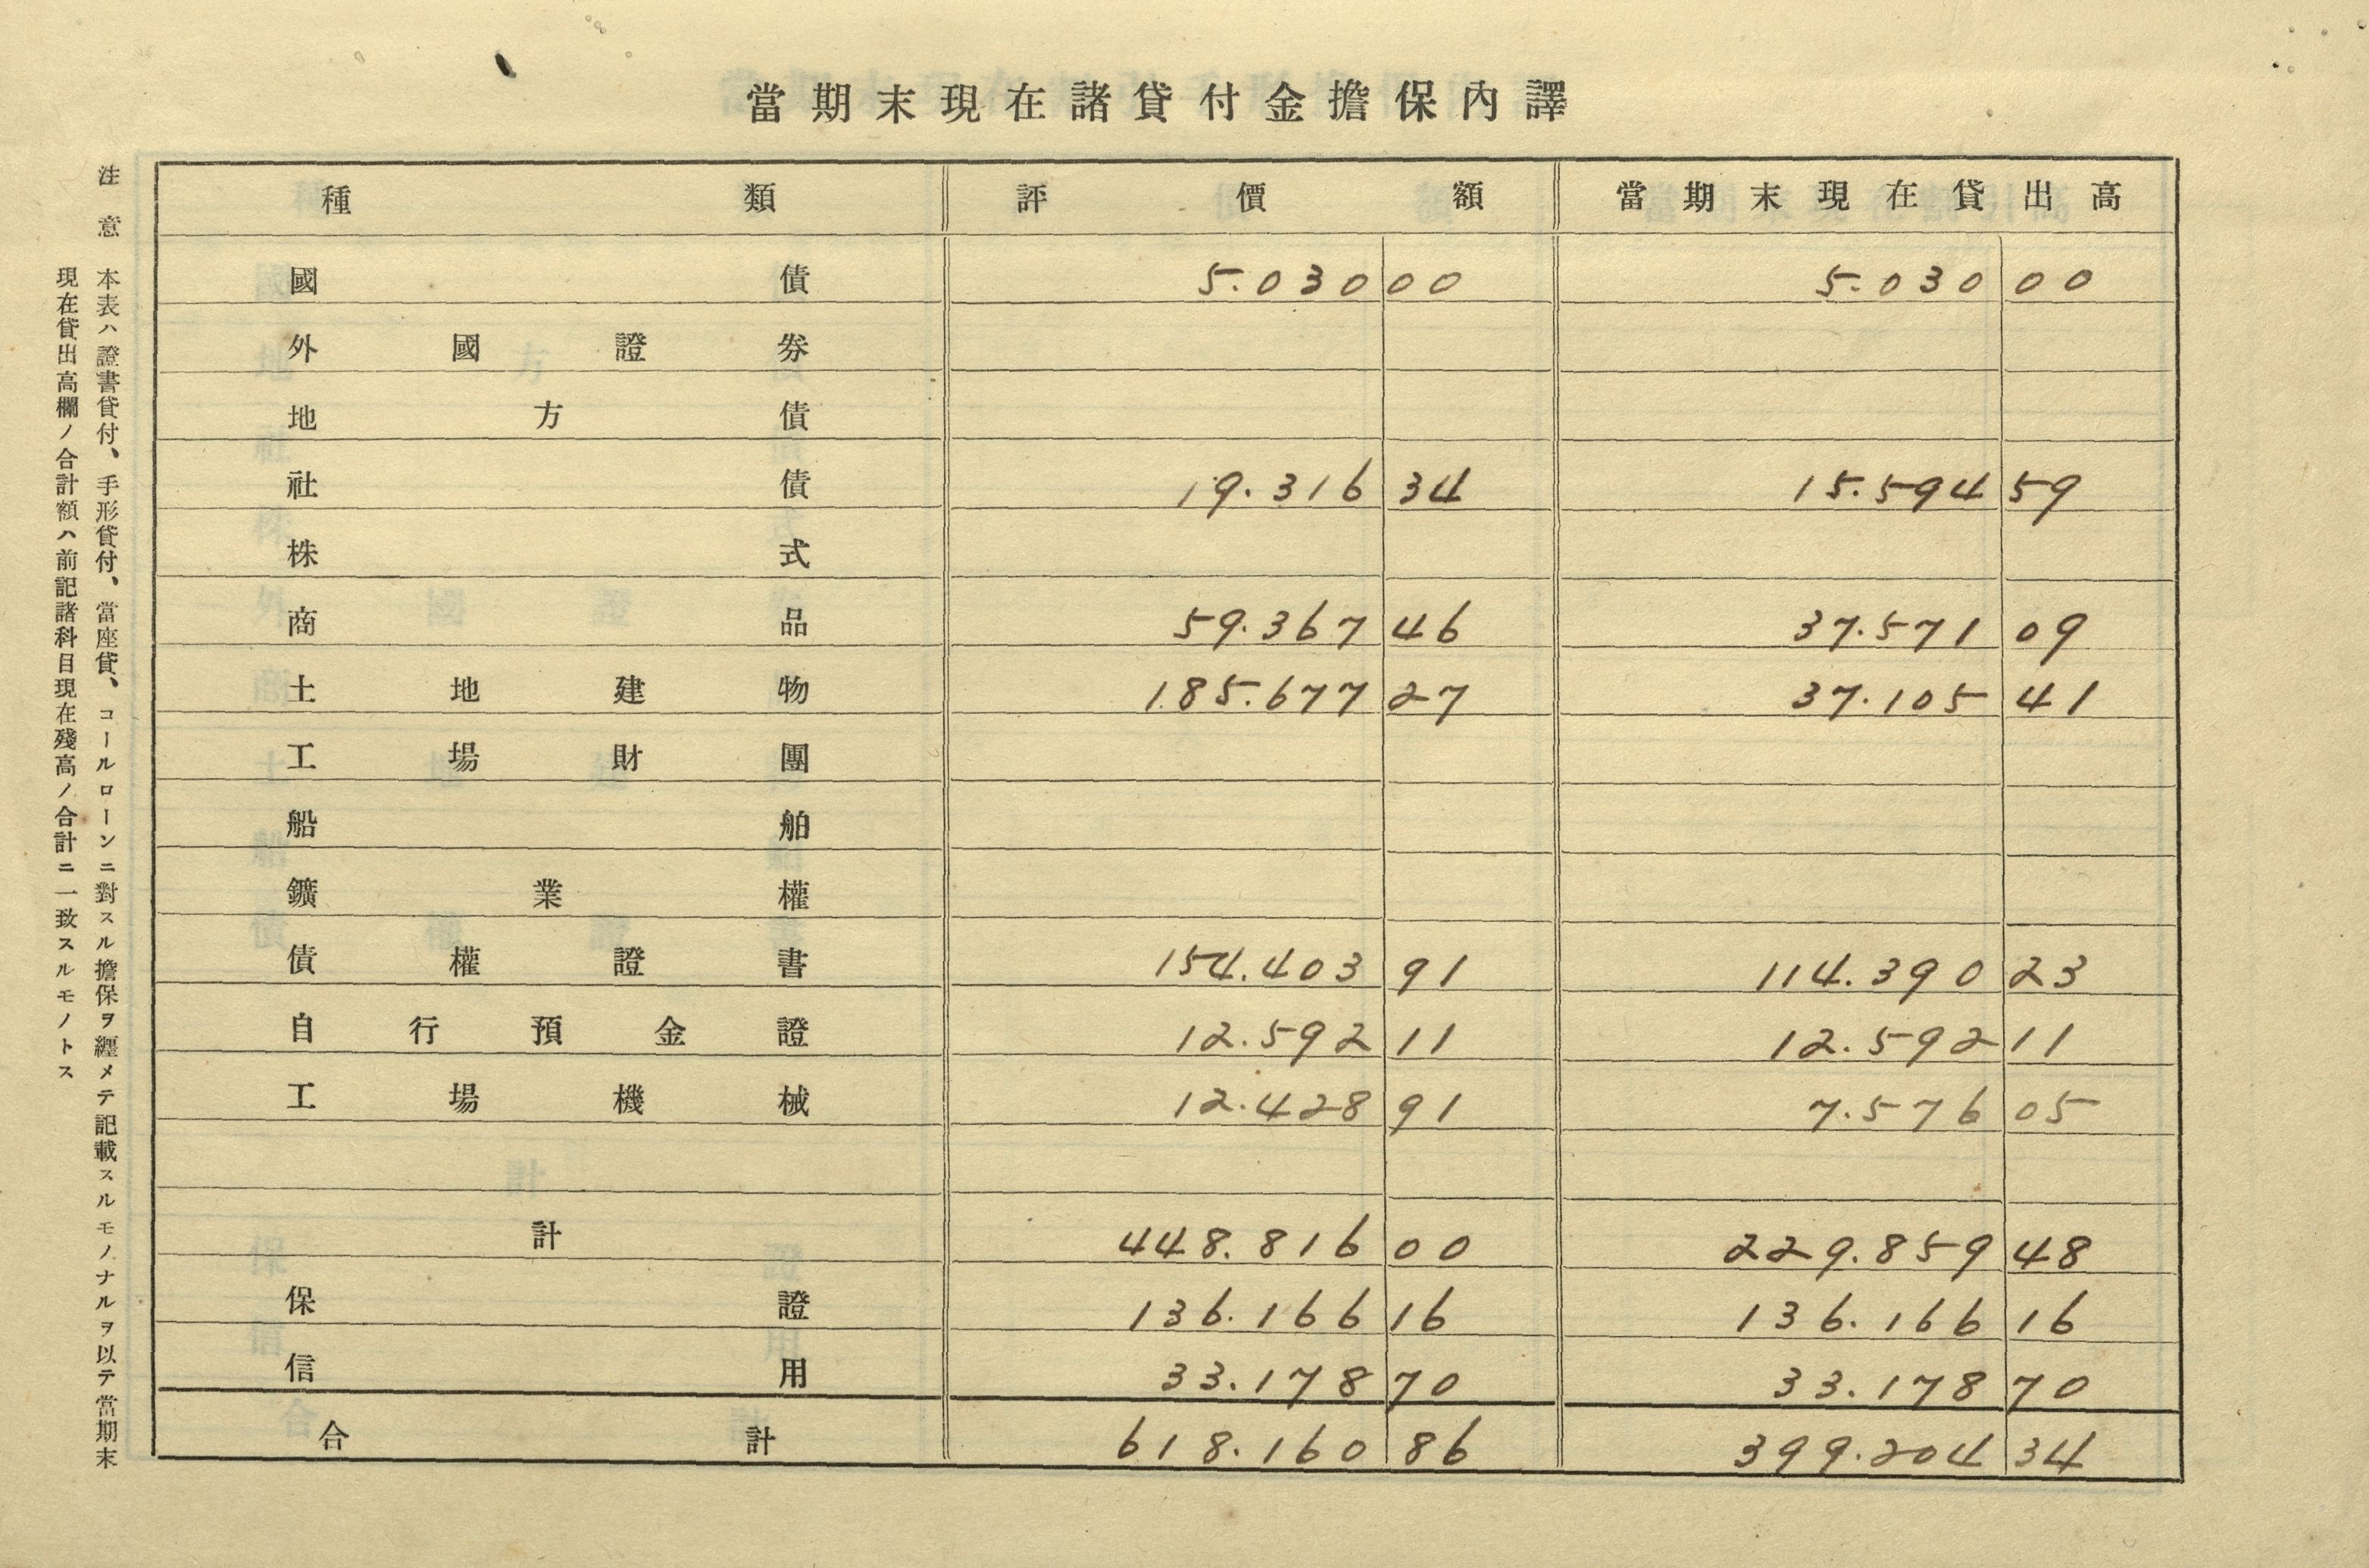 當期末現在諸貸付金擔保內譯
種類 評價額 當期末現在貸出高
國債 5.030 00 5.030 00
外國證券
地方債
社債 19.316 34 15.594 59
株式
商品 59.367 46 37.571 09
土地建物 185.677 27 37.105 41
工場財團
船舶
鑛業權
債權證書 154.403 91 114.390 23
自行預金證 12.592 11 12.592 11
工場機械 12.428 91 7.576 05
計 448.816 00 229.859 48
保證 136.166 16 136.166 16
信用 33.178 70 33.178 70
合計 618.160 86 399.204 34
注意 本表ハ證書貸付、手形貸付、當座貸、コールローンニ對スル擔保ヲ纒メテ記載スルモノナルヲ以テ當期末
現在貸出高欄ノ合計額ハ前記諸科目現在殘高ノ合計ニ一致スルモノトス